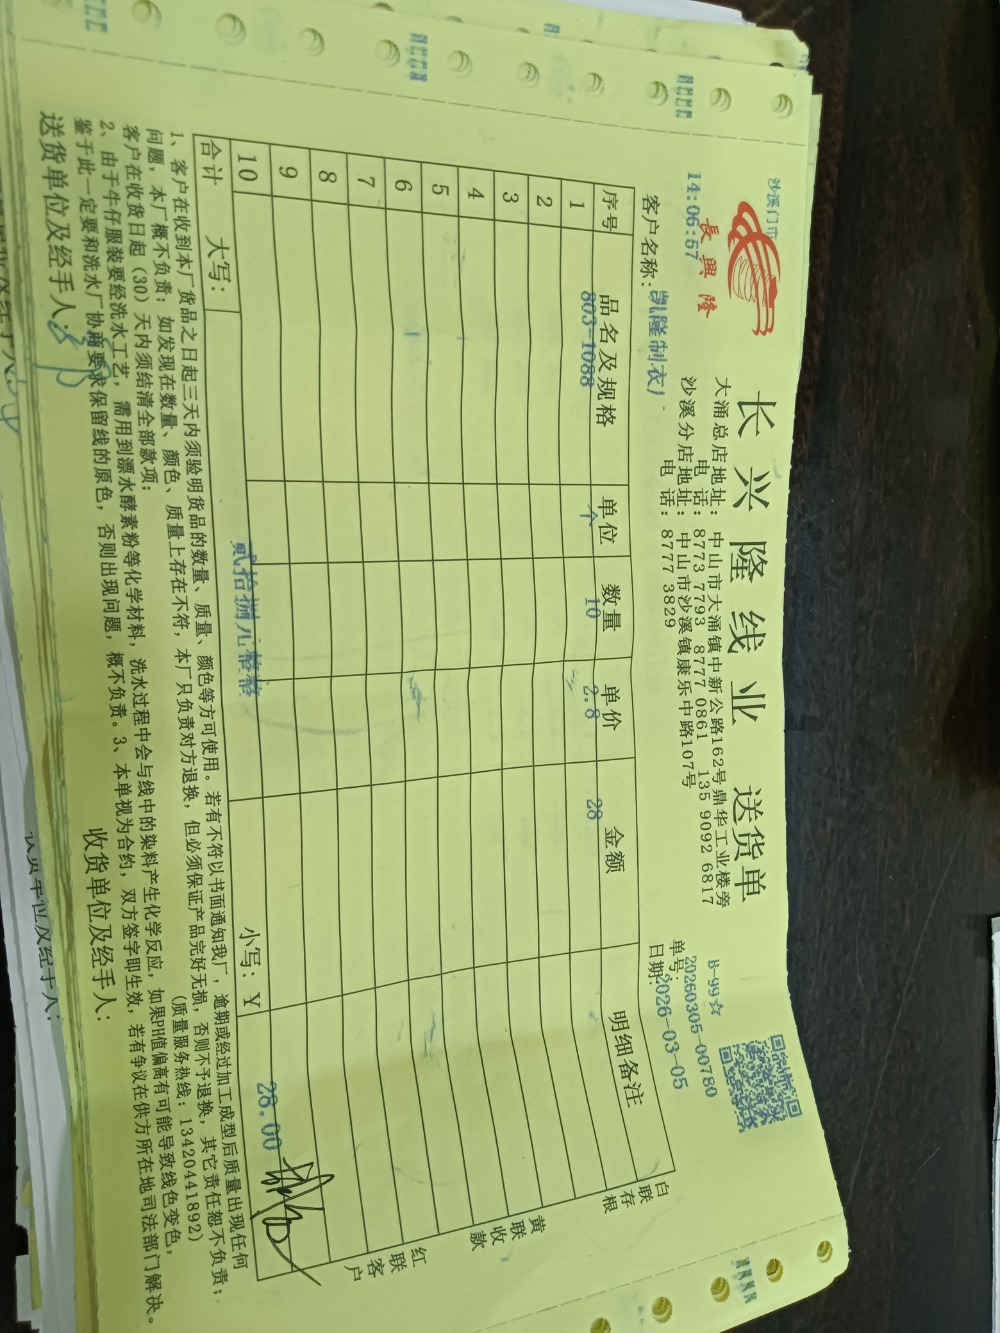 沙溪门市
長興隆
14:06:57
长兴隆线业 送货单
大涌总店地址：中山市大涌镇中新公路162号鼎华工业楼旁
电 话：8773 7793 8777 0861 135 9092 6817
沙溪分店地址：中山市沙溪镇康乐中路107号
电 话：8777 3829
B-99☆
单号：20260305-00780
日期：2026-03-05
客户名称：凯隆制衣厂
序号 品名及规格 单位 数量 单价 金额 明细备注
1 803-1088 个 10 2.8 28
2
3
4
5
6
7
8
9
10
合计 大写： 贰拾捌元整整 小写：¥ 28.00
白联存根
黄联收款
红联客户
1、客户在收到本厂货品之日起三天内须验明货品的数量、质量、颜色等方可使用。若有不符以书面通知我厂，逾期或经过加工成型后质量出现任何
问题，本厂概不负责；如发现在数量、颜色、质量上存在不符，本厂只负责对方退换，但必须保证产品完好无损，否则不予退换，其它责任恕不负责；
客户在收货日起（30）天内须结清全部款项； （质量服务热线：13420441892）
2、由于牛仔服装要经洗水工艺，需用到漂水酵素粉等化学材料，洗水过程中会与线中的染料产生化学反应，如果PH值偏高有可能导致线色变色，
鉴于此一定要和洗水厂协商要求保留线的原色，否则出现问题，概不负责。3、本单视为合约，双方签字即生效，若有争议在供方所在地司法部门解决。
送货单位及经手人： 收货单位及经手人：